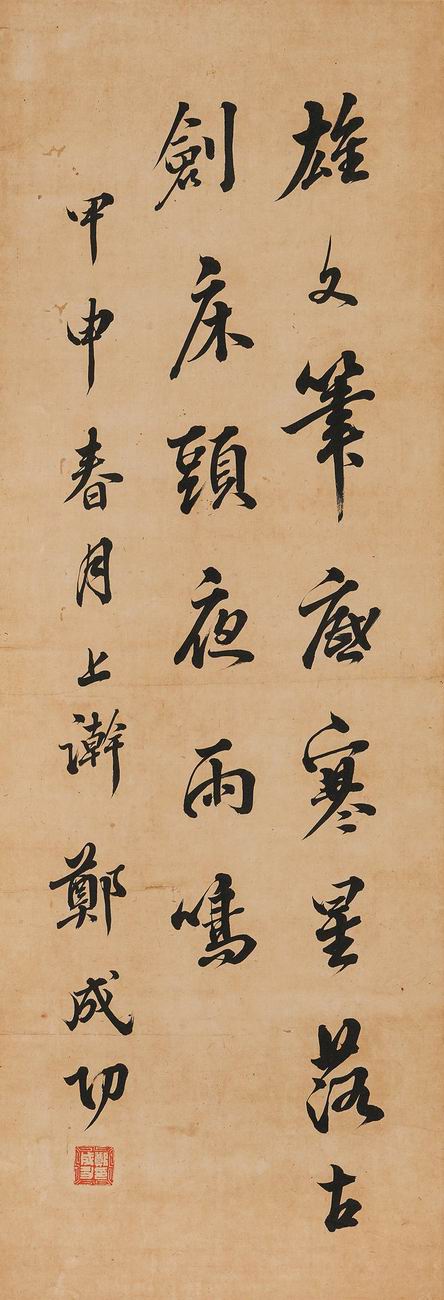 雄文筆底寒星落古
劍床頭夜雨鳴
甲申春月上澣鄭成功